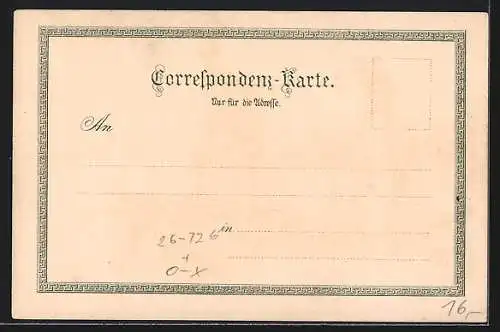 Correspondenz-Karte.
Nur für die Adresse.
An
in
26-726
0-x
16,-